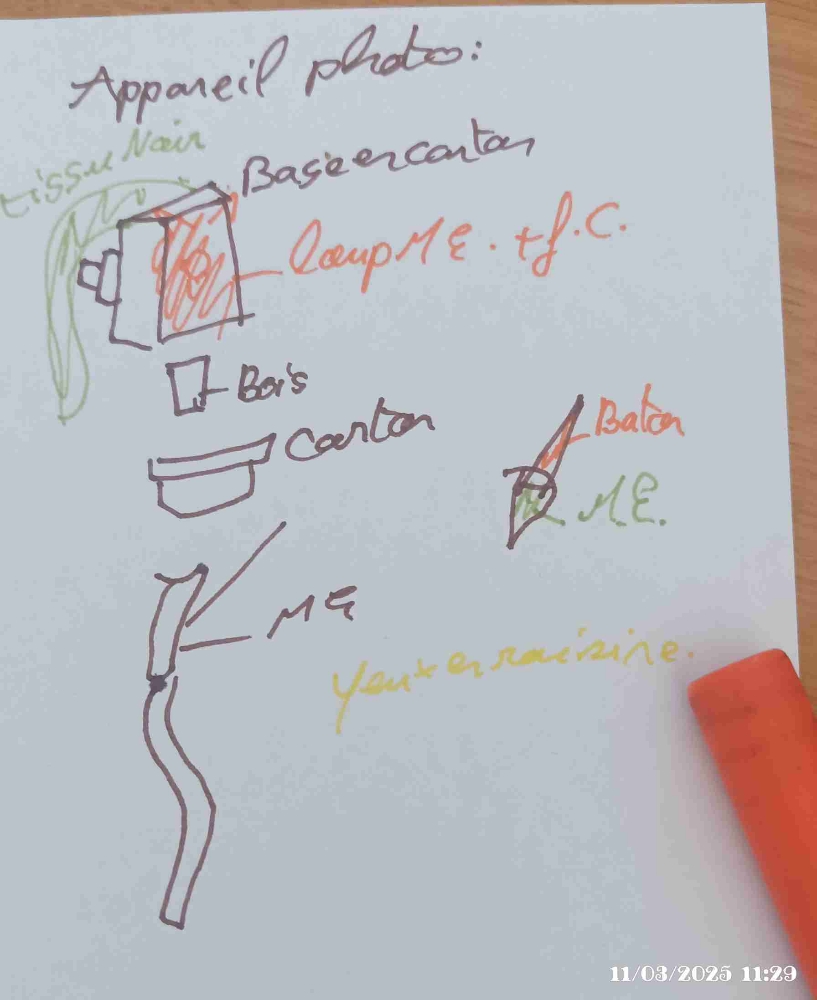 Appareil photo:
tissu Noir
Base en carton
loup M E. + f. C.
Bois
Carton
Baton
M E.
M E
Yeux en raisine.
11/03/2025 11:29